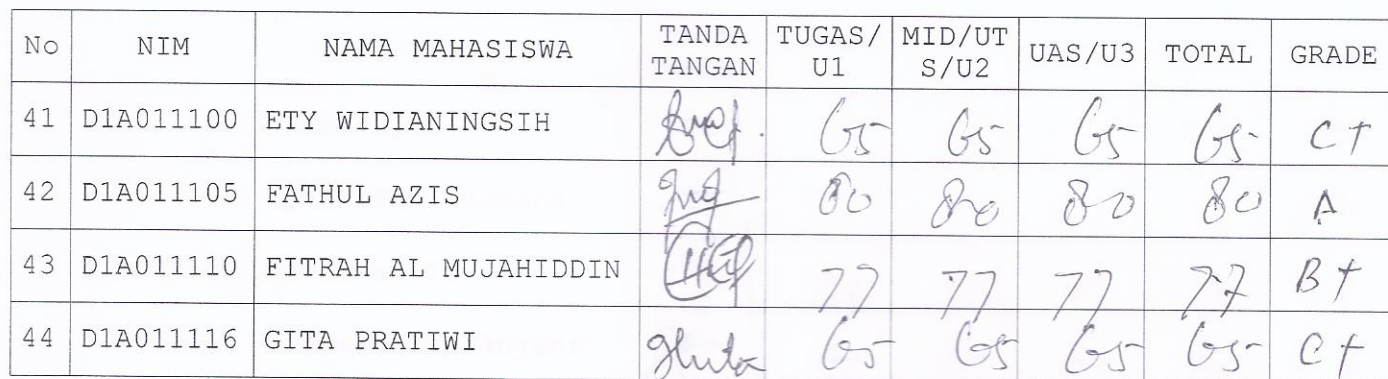 No NIM NAMA MAHASISWA TANDA TANGAN TUGAS/U1 MID/UTS/U2 UAS/U3 TOTAL GRADE
41 D1A011100 ETY WIDIANINGSIH 65 65 65 65 C+
42 D1A011105 FATHUL AZIS 80 80 80 80 A
43 D1A011110 FITRAH AL MUJAHIDDIN 77 77 77 77 B+
44 D1A011116 GITA PRATIWI 65 65 65 65 C+